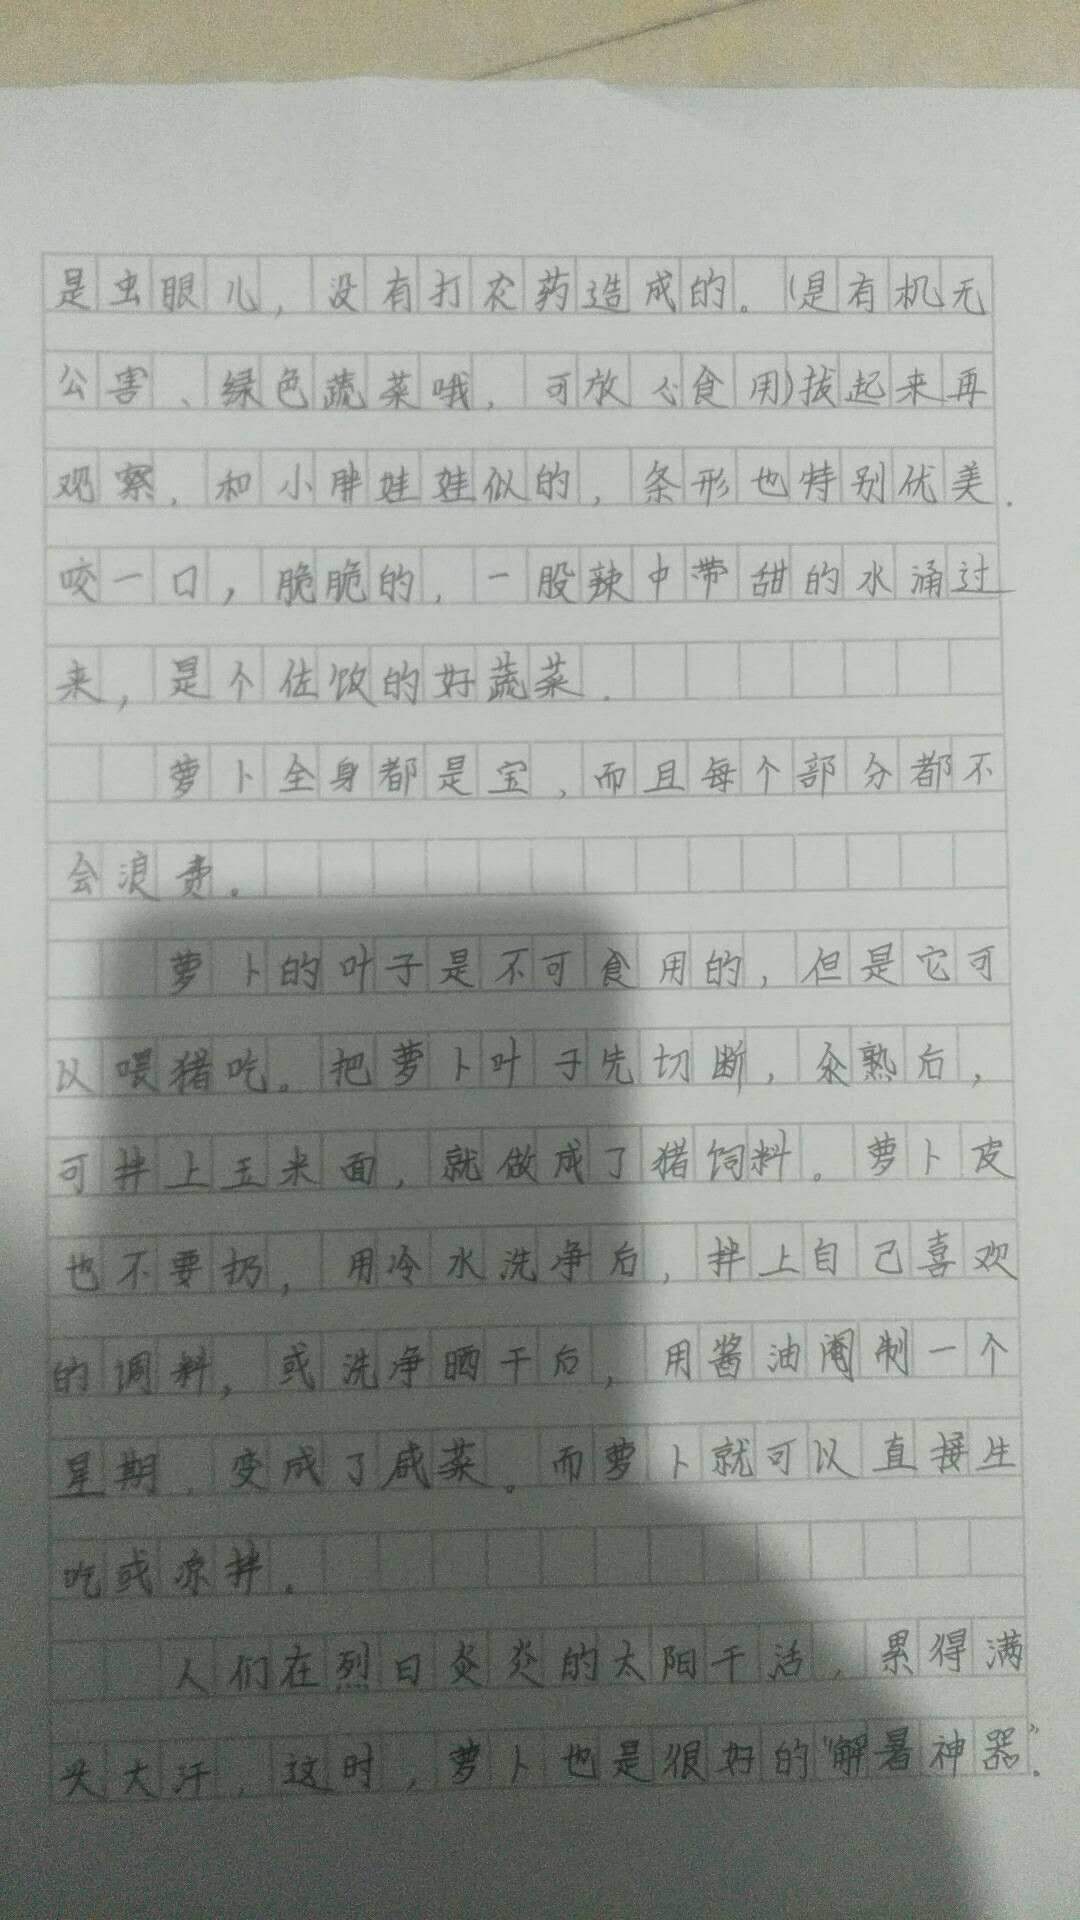 是虫眼儿，没有打农药造成的。（是有机无
公害、绿色蔬菜哦，可放心食用）拔起来再
观察，和小胖娃娃似的，条形也特别优美．
咬一口，脆脆的，一股辣中带甜的水涌过
来，是个佐饭的好蔬菜．
萝卜全身都是宝，而且每个部分都不
会浪费。
萝卜的叶子是不可食用的，但是它可
以喂猪吃。把萝卜叶子先切断，汆熟后，
可拌上玉米面，就做成了猪饲料。萝卜皮
也不要扔，用冷水洗净后，拌上自己喜欢
的调料，或洗净晒干后，用酱油阉制一个
星期，变成了咸菜。而萝卜就可以直接生
吃或凉拌．
人们在烈日炎炎的太阳干活，累得满
头大汗，这时，萝卜也是很好的“解暑神器”．